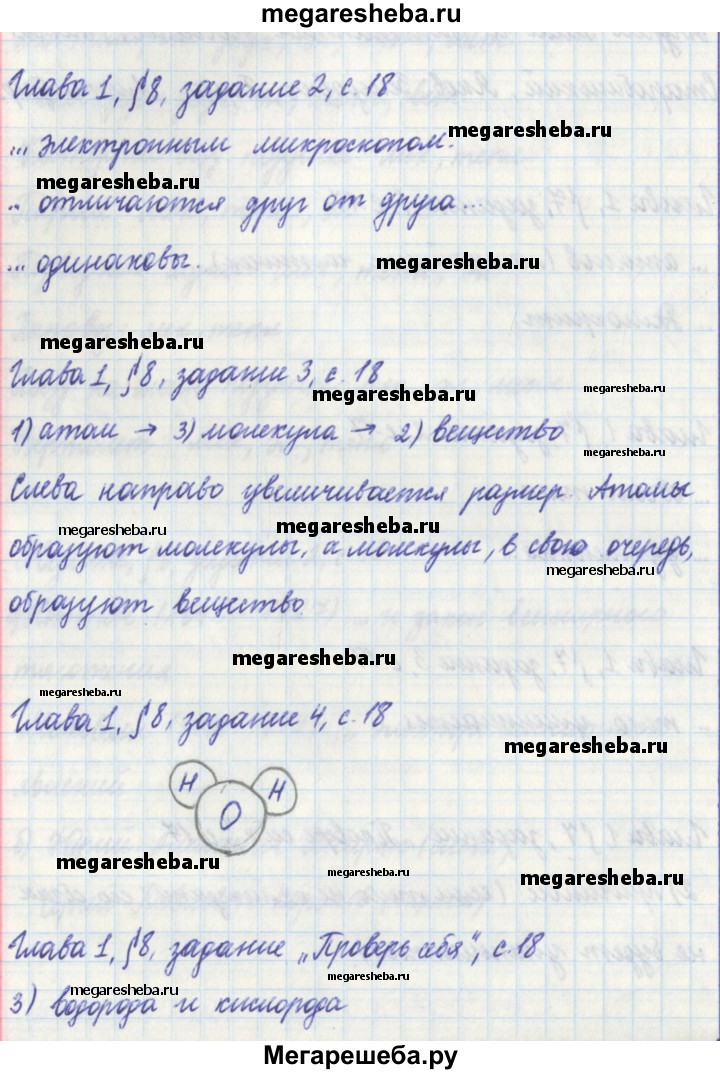 megaresheba.ru
Глава 1, §8, задание 2, с. 18
... электронным микроскопом.
megaresheba.ru
megaresheba.ru
.. отличаются друг от друга...
... одинаковы.
megaresheba.ru
megaresheba.ru
Глава 1, §8, задание 3, с. 18
megaresheba.ru
megaresheba.ru
1) атом → 3) молекула → 2) вещество
megaresheba.ru
Слева направо увеличивается размер. Атомы
megaresheba.ru
megaresheba.ru
образуют молекулы, а молекулы, в свою очередь,
megaresheba.ru
образуют вещество
megaresheba.ru
megaresheba.ru
Глава 1, §8, задание 4, с. 18
megaresheba.ru
H H
O
megaresheba.ru
megaresheba.ru
megaresheba.ru
Глава 1, §8, задание „Проверь себя", с. 18
megaresheba.ru
megaresheba.ru
3) водорода и кислорода
megaresheba.ru
Мегарешеба.ру